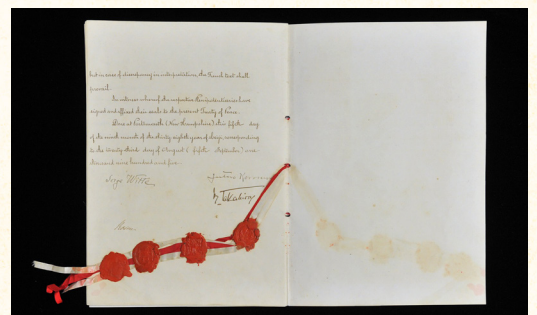 but in case of discrepancy in interpretation, the French text shall
prevail.
In witness whereof the respective Plenipotentiaries have
signed and affixed their seals to the present Treaty of Peace.
Done at Portsmouth (New Hampshire) this fifth day
of the ninth month of the thirty eighth year of Meiji, corresponding
to the twenty third day of August (fifth September) one
thousand nine hundred and five.
Serge Witte
Jutaro Komura
K. Takahira
Rosen